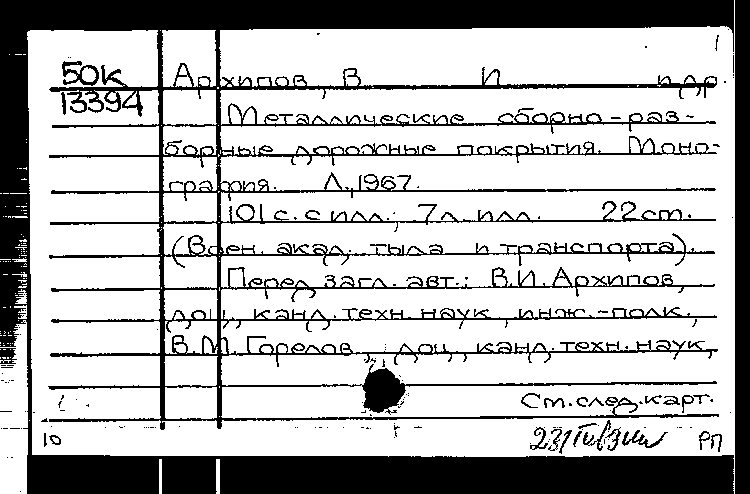 1
50К Архипов, В И и др.
13394
Металлические сборно-раз-
борные дорожные покрытия. Моно-
графия. Л., 1967.
101 с. с илл.; 7 л. илл. 22 см.
(Воен. акад. тыла и транспорта).
Перед загл. авт.: В.И. Архипов,
доц., канд. техн. наук, инж.-полк.,
В.М. Горелов, доц., канд. техн. наук,
См. след. карт.
10 РП